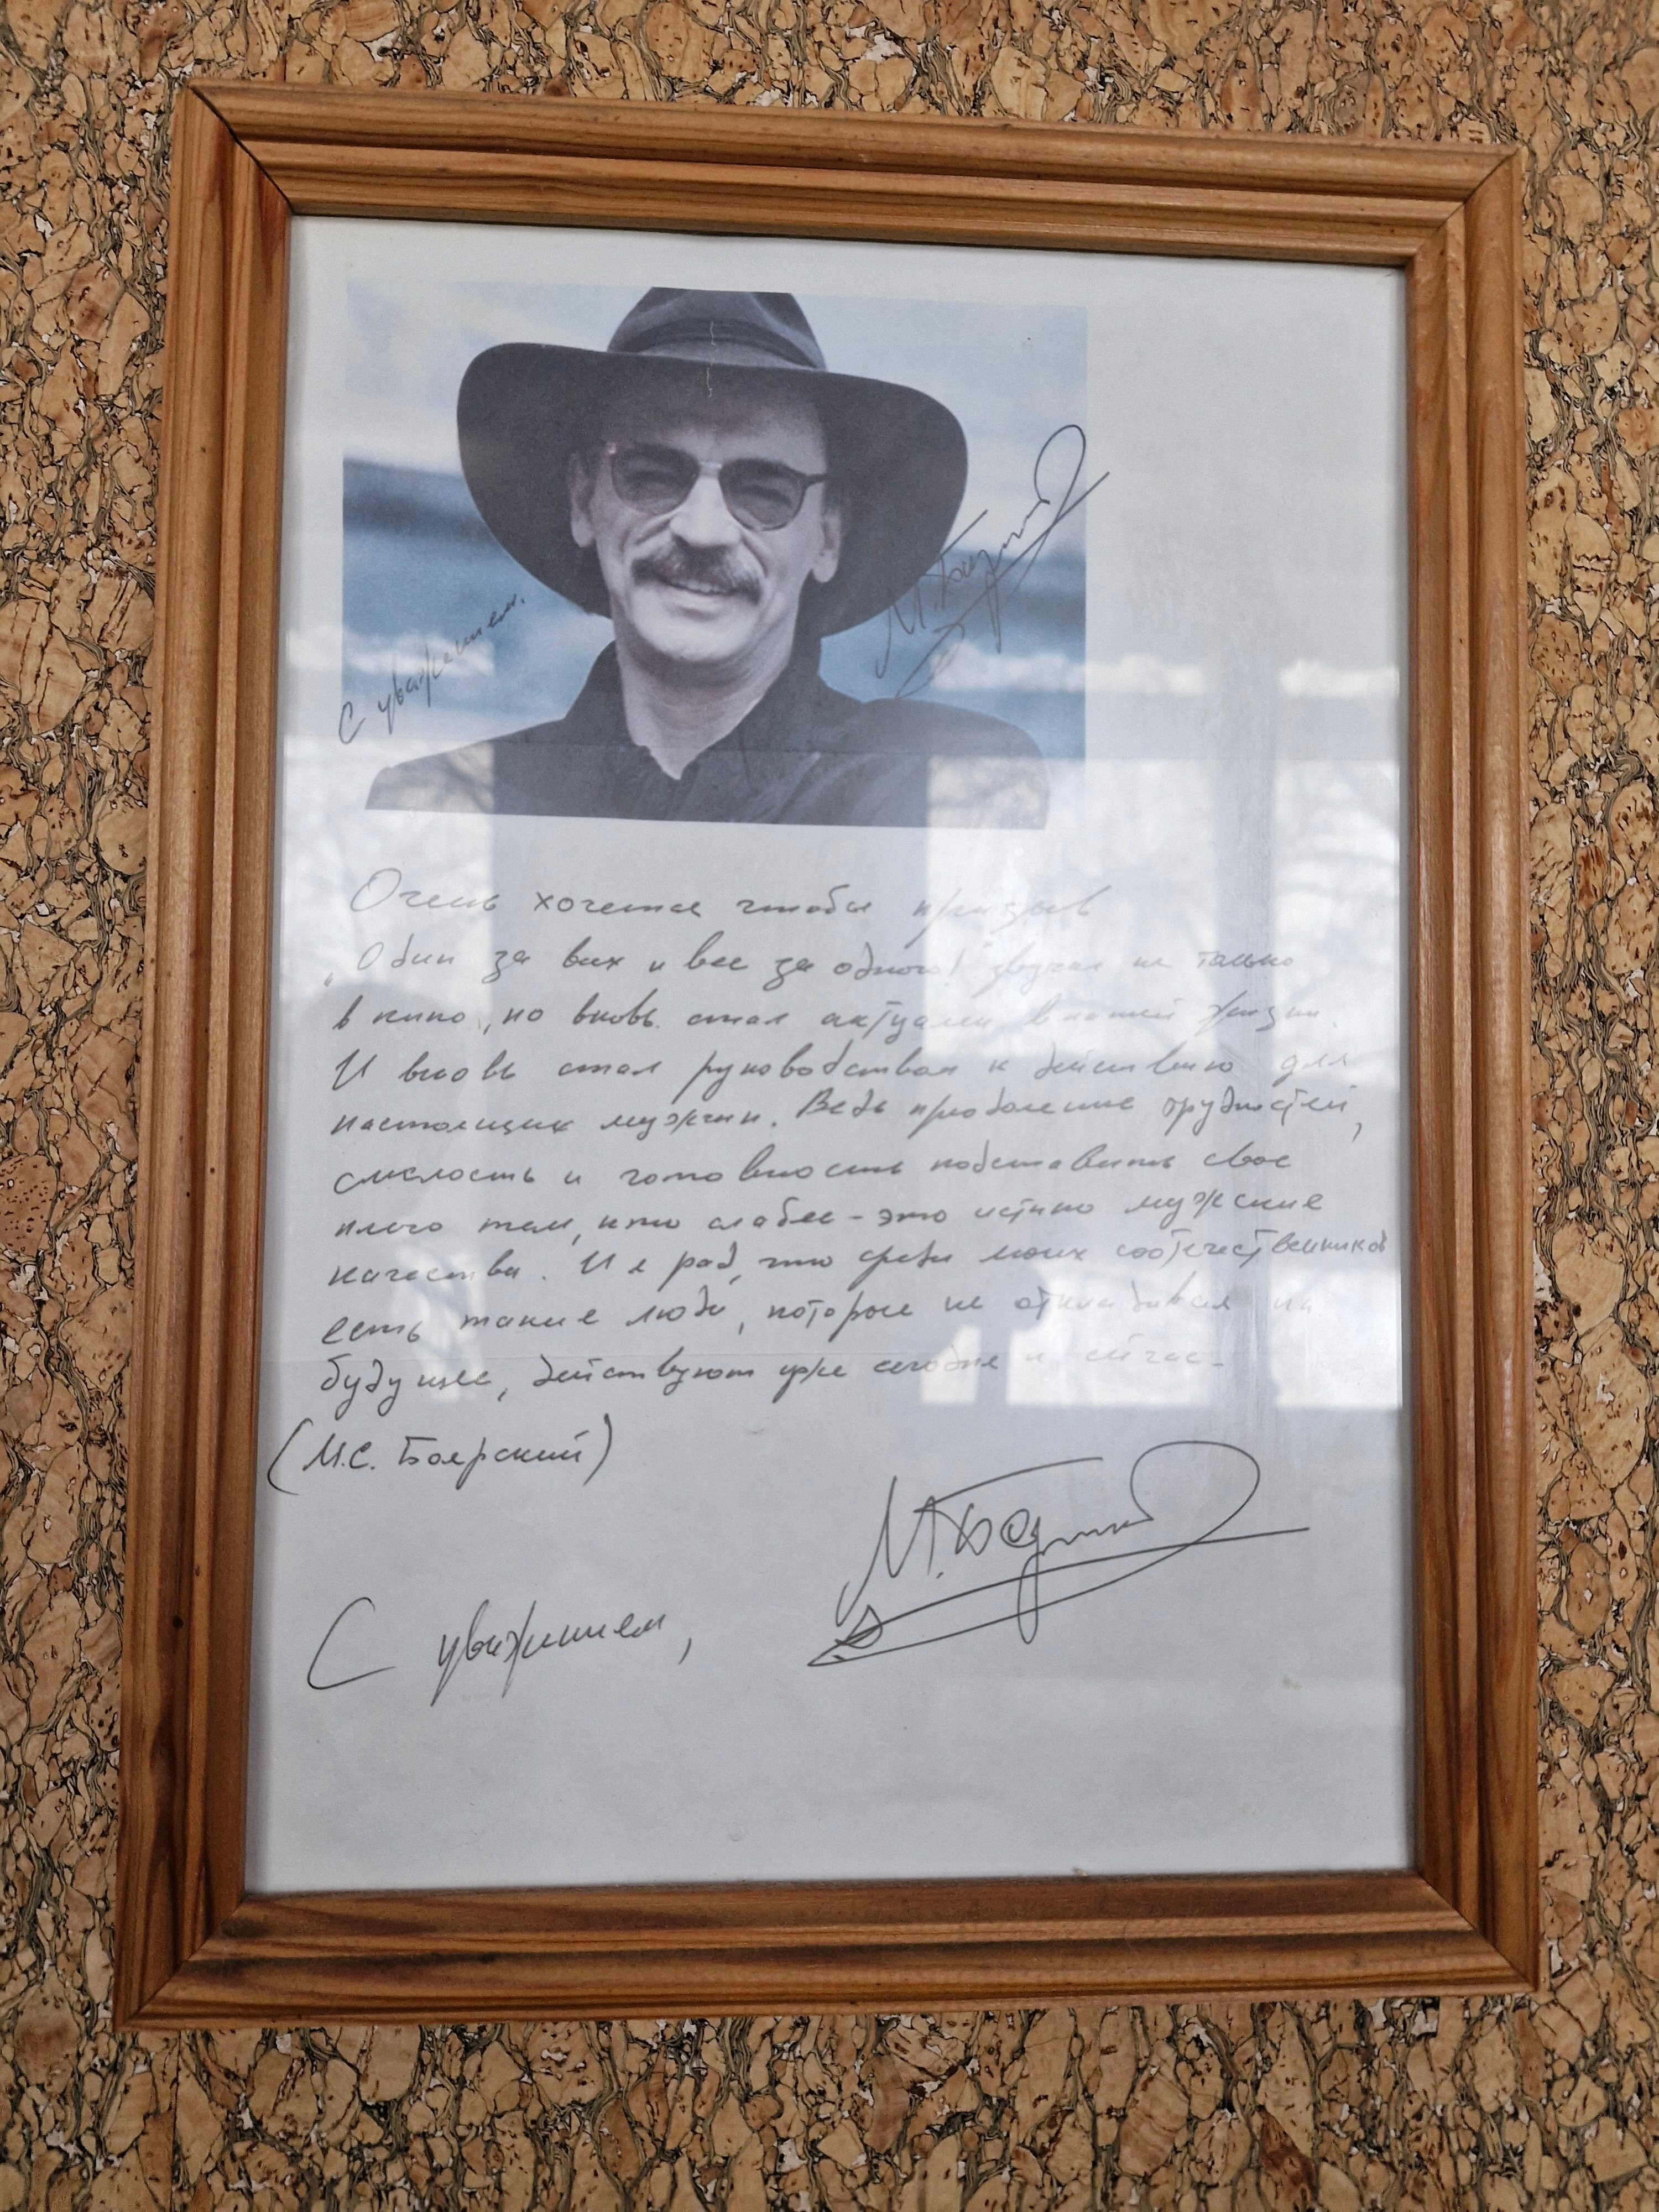 С уважением.
М. Боярский
Очень хочется чтобы призыв
"Один за всех и все за одного! звучал не только
в кино, но вновь стал актуален в нашей жизни.
И вновь стал руководством к действию для
настоящих мужчин. Ведь преодоление трудностей,
смелость и готовность подставить свое
плечо тем, кто слабее - это истино мужские
качества. И я рад, что среди моих соотечественников
есть такие люди, которые не откладывая на
будущее, действуют уже сегодня и сейчас.
(М.С. Боярский)
М. Боярский
С уважением,